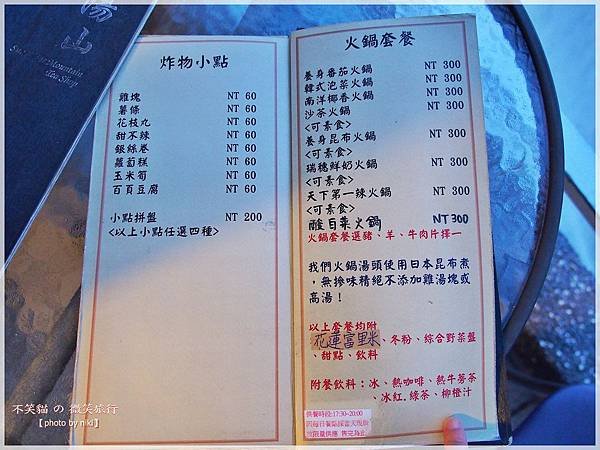 湯山
炸物小點
雞塊 NT 60
薯條 NT 60
花枝丸 NT 60
甜不辣 NT 60
銀絲卷 NT 60
蘿蔔糕 NT 60
玉米筍 NT 60
百頁豆腐 NT 60
小點拼盤 NT 200
<以上小點任選四種>
火鍋套餐
養身番茄火鍋 NT 300
韓式泡菜火鍋 NT 300
南洋椰香火鍋 NT 300
沙茶火鍋 NT 300
<可素食>
養身昆布火鍋 NT 300
<可素食>
瑞穗鮮奶火鍋 NT 300
<可素食>
天下第一辣火鍋 NT 300
<可素食>
酸白菜火鍋 NT300
火鍋套餐選豬、羊、牛肉片擇一
我們火鍋湯頭使用日本昆布煮
，無摻味精絕不添加雞湯塊或
高湯！
以上套餐均附
花蓮富里米、冬粉、綜合野菜盤
、甜點、飲料
附餐飲料：冰、熱咖啡、熱牛蒡茶
、冰紅.綠茶、柳橙汁
供餐時段:17:30~20:00
不笑貓 の 微笑旅行
【photo by niki】